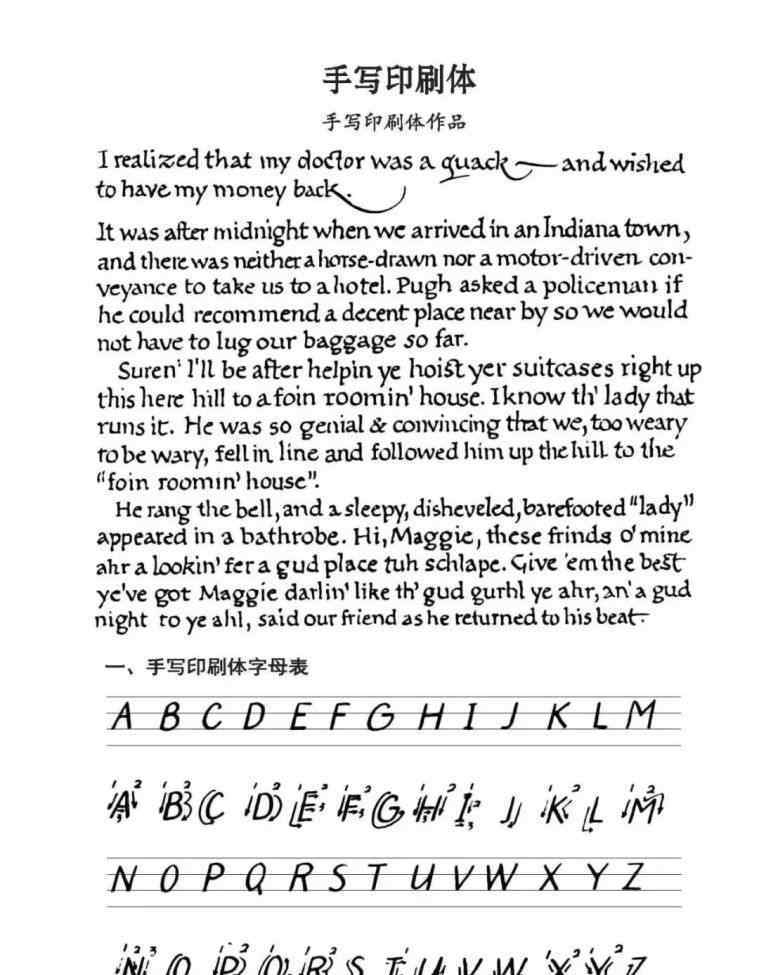 手写印刷体
手写印刷体作品
I realized that my doctor was a quack — and wished
to have my money back.
It was after midnight when we arrived in an Indiana town,
and there was neither a horse-drawn nor a motor-driven con-
veyance to take us to a hotel. Pugh asked a policeman if
he could recommend a decent place near by so we would
not have to lug our baggage so far.
Suren' I'll be after helpin ye hoist yer suitcases right up
this here hill to a foin roomin' house. I know th' lady that
runs it. He was so genial & convincing that we, too weary
to be wary, fell in line and followed him up the hill to the
"foin roomin' house".
He rang the bell, and a sleepy, disheveled, barefooted "lady"
appeared in a bathrobe. Hi, Maggie, these frinds o' mine
ahr a lookin' fer a gud place tuh schlape. Give 'em the best
ye've got Maggie darlin' like th' gud gurhl ye ahr, an' a gud
night to ye ahl, said our friend as he returned to his beat.
一、手写印刷体字母表
A B C D E F G H I J K L M
A B C D E F G H I J K L M
N O P Q R S T U V W X Y Z
N O P Q R S T U V W X Y Z